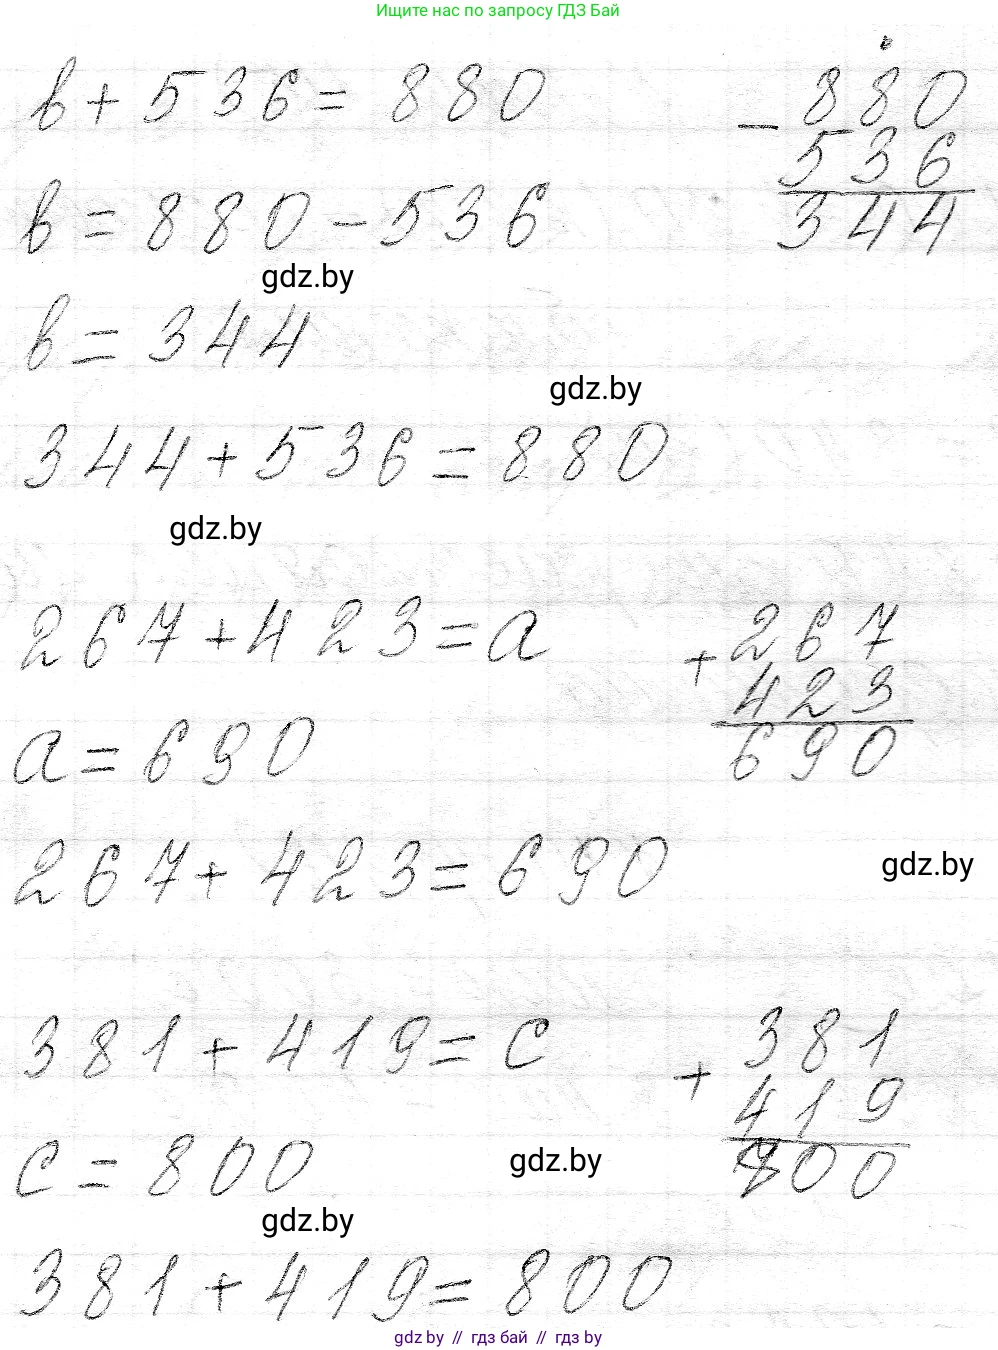 Ищите нас по запросу ГДЗ Бай
в + 536 = 880
- 880
536
344
в = 880 - 536
gdz.by
в = 344
gdz.by
344 + 536 = 880
gdz.by
267 + 423 = а
+ 267
423
690
а = 690
267 + 423 = 690
gdz.by
381 + 419 = с
+ 381
419
800
с = 800
gdz.by
gdz.by
381 + 419 = 800
gdz by // гдз бай // гдз by